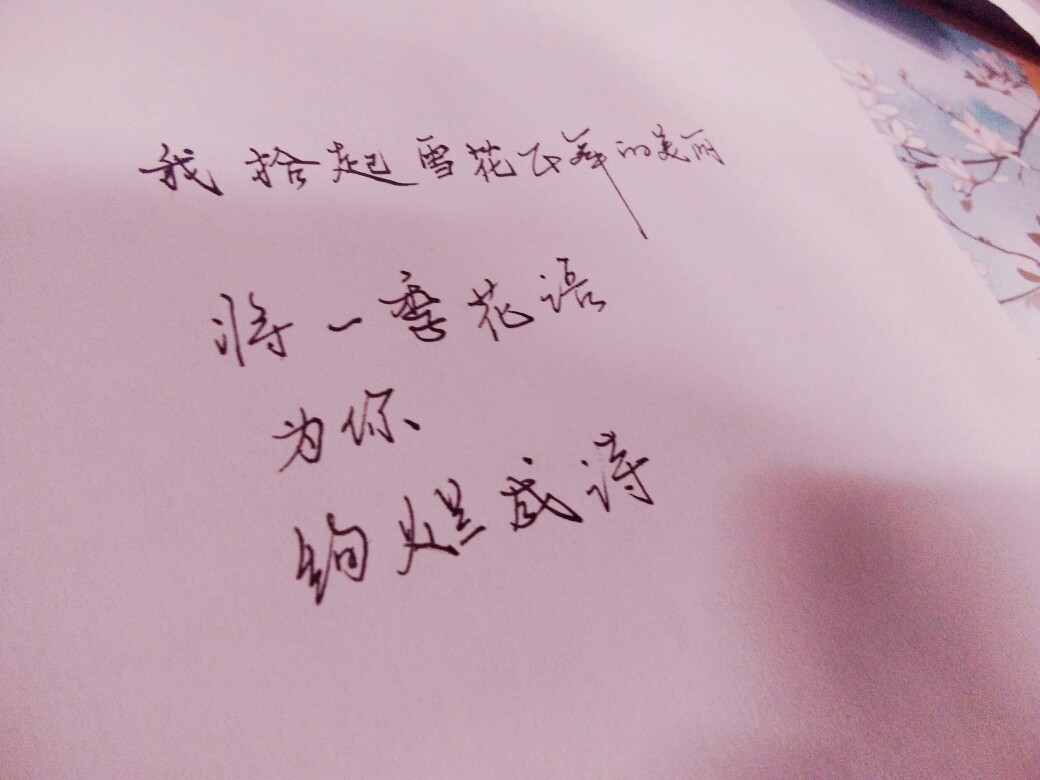 我拾起雪花飞舞的美丽
将一季花语
为你
绚烂成诗